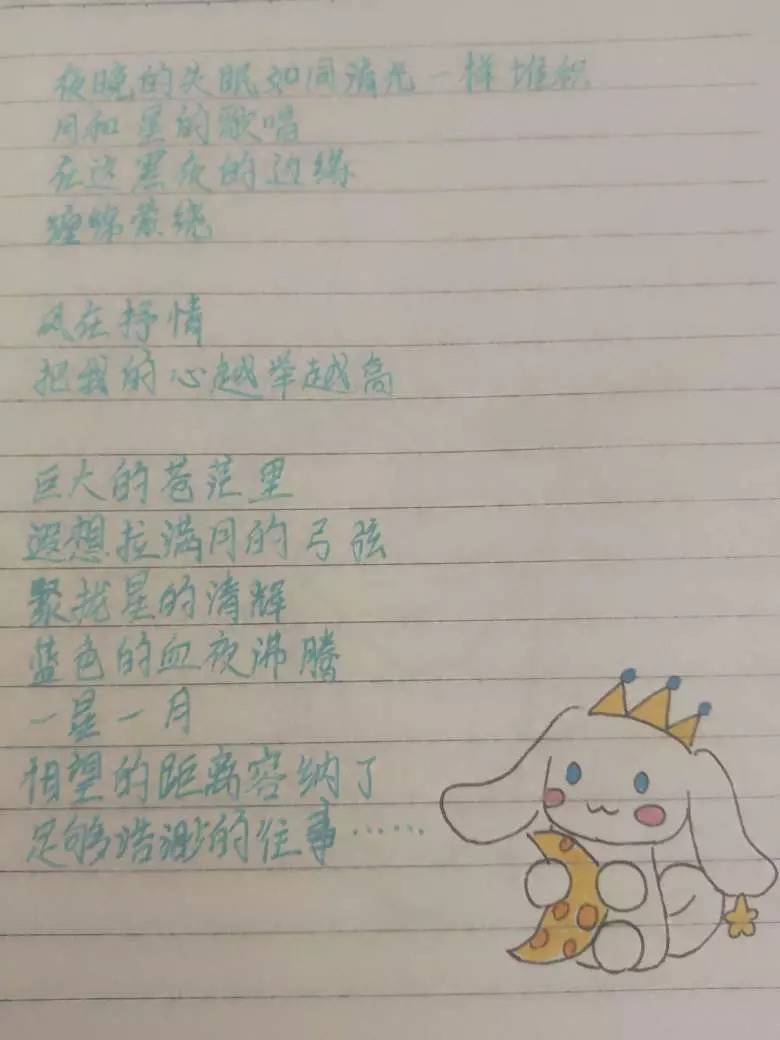 夜晚的失眠如同流光一样堆积
月和星的歌唱
在这黑夜的边缘
缠绵萦绕
风在抒情
把我的心越举越高
巨大的苍茫里
遐想拉满月的弓弦
聚拢星的清辉
蓝色的血夜沸腾
一星一月
相望的距离容纳了
足够浩渺的往事……